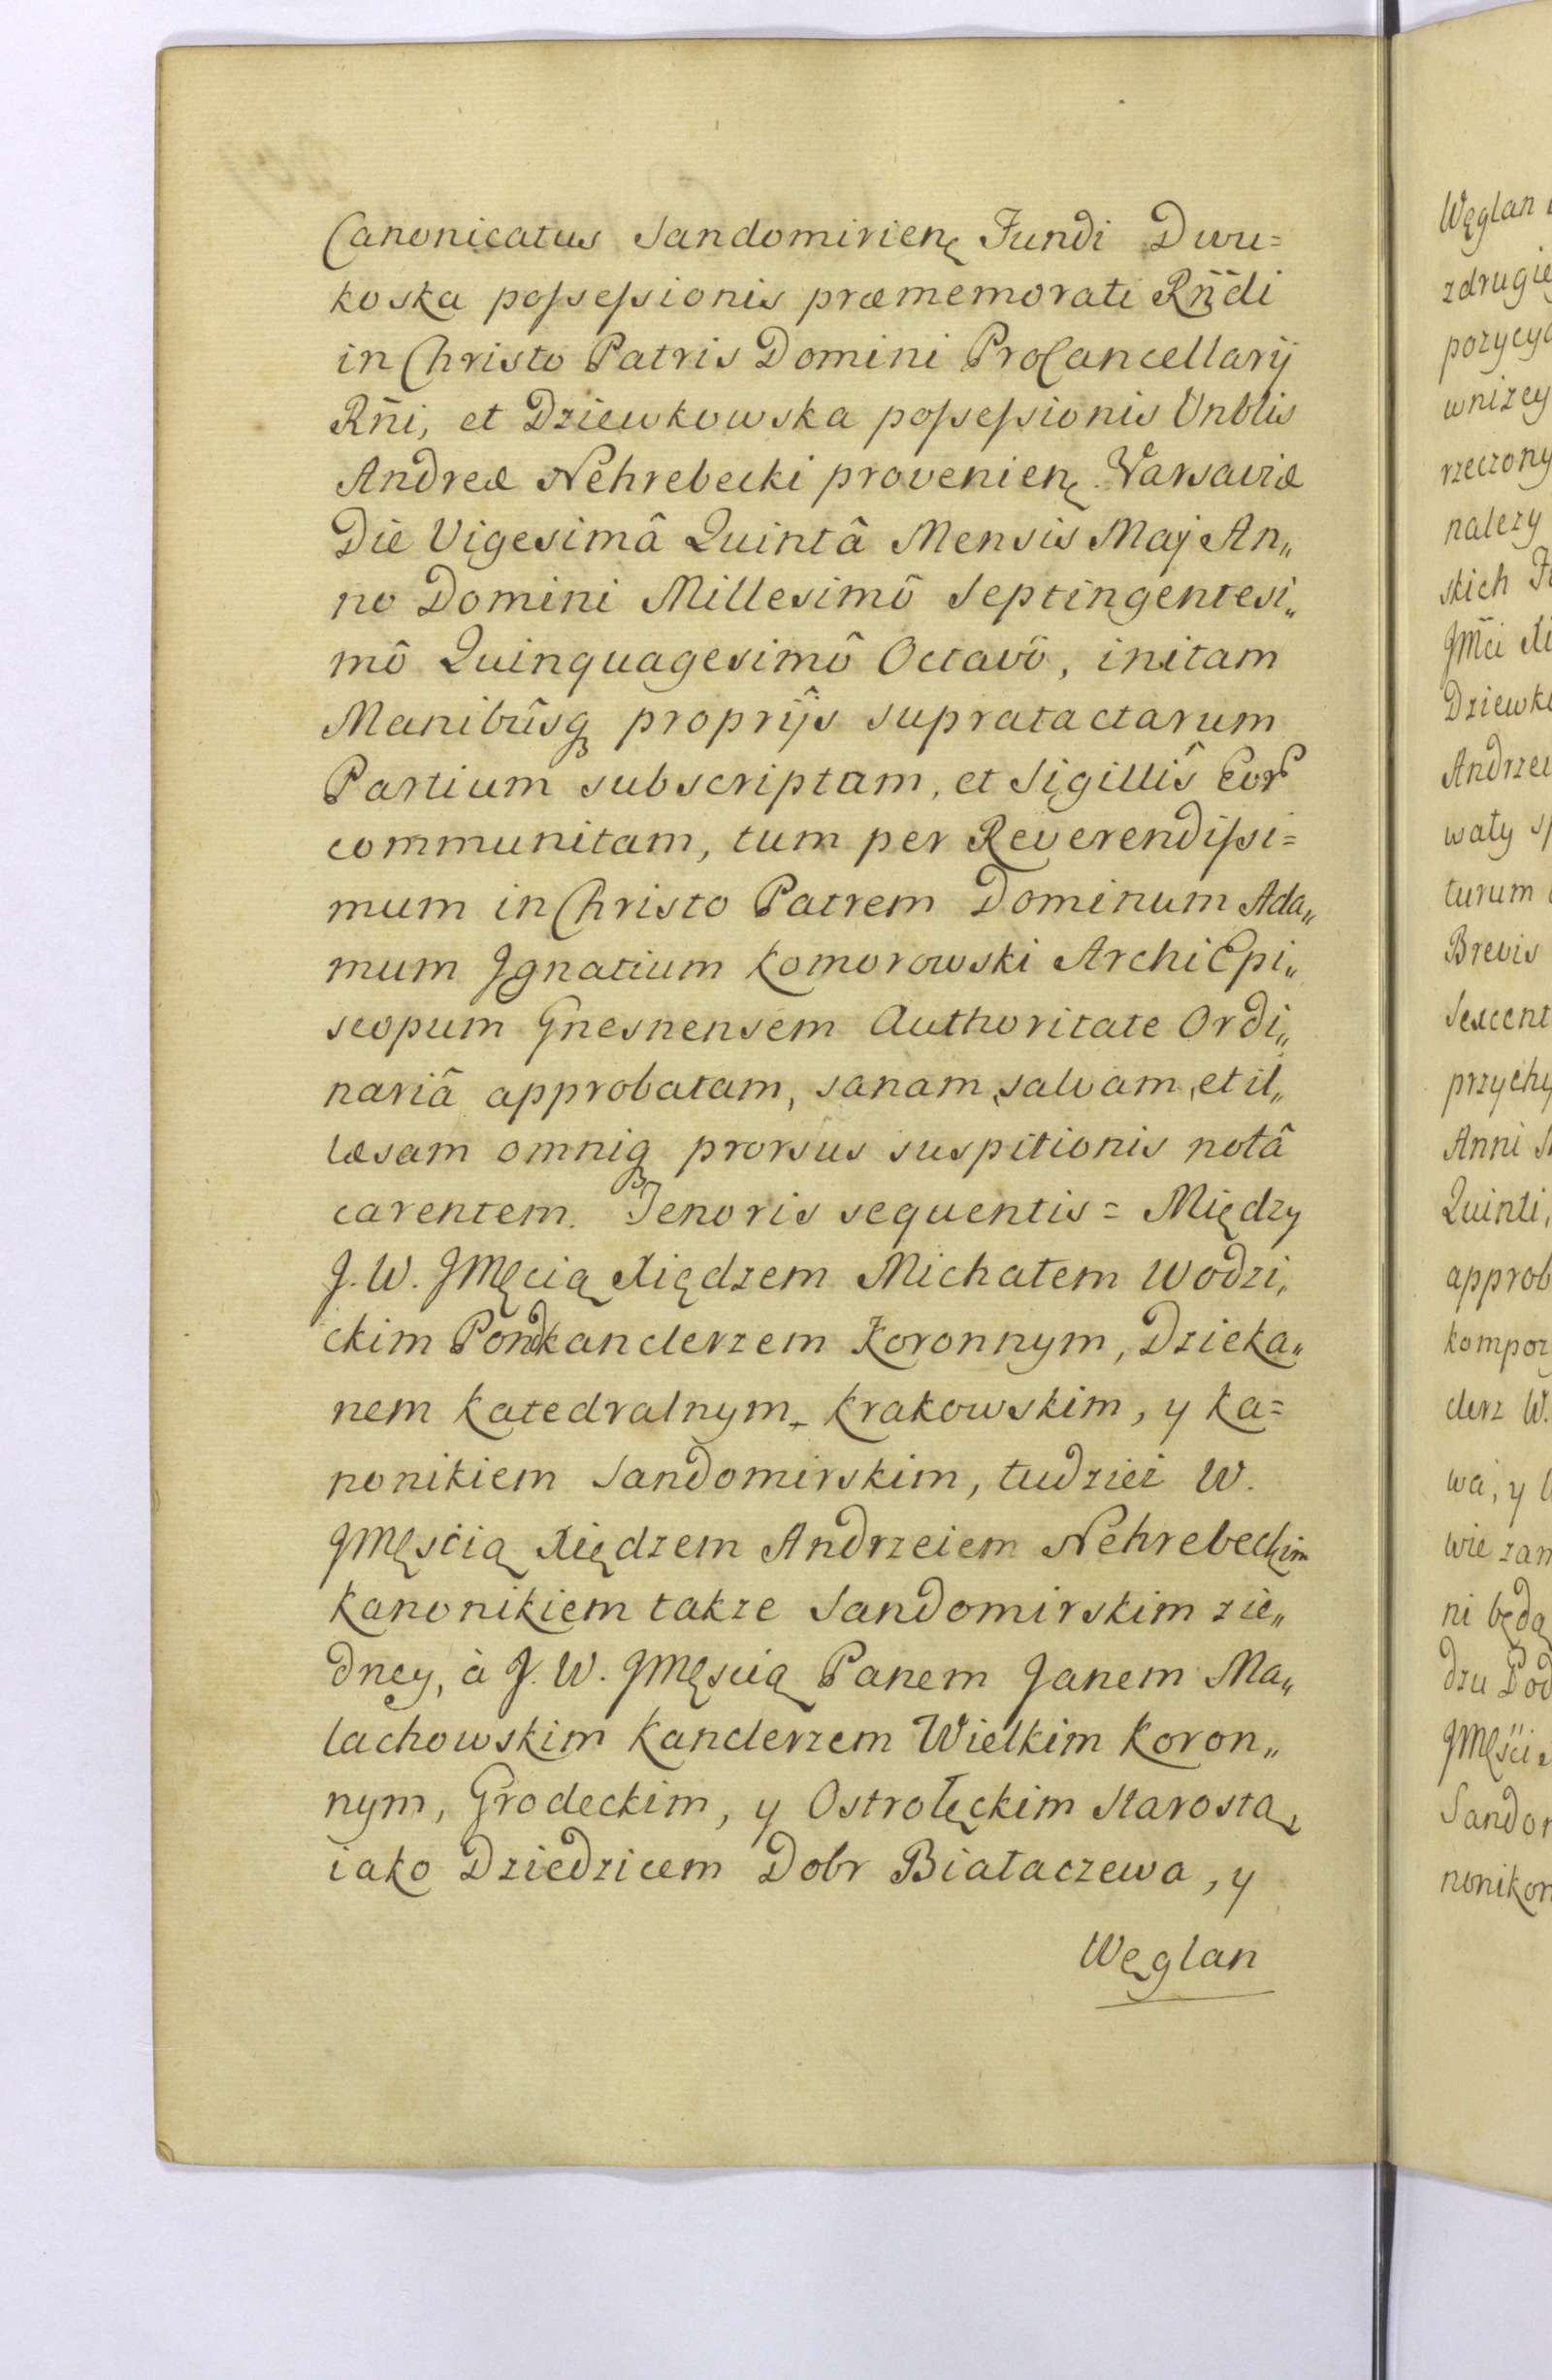 Canonicatus Sandomirien Fundi Dwu=
koska possessionis præmemorati Rñdi
in Christo Patris Domini ProCancellarij
Rñi, et Dziewkowska possessionis Vnblis
Andreæ Nehrebecki provenien. Varsaviæ
Die Vigesimâ Quintâ Mensis Maj An„
no Domini Millesimô Septingentesi„
mô Quinquagesimô Octavô, initam
Manibûsq propriîs supratactarum
Partium subscriptam, et Sigillîs Eor
communitam, tum per Reverendissi=
mum in Christo Patrem Dominum Ada„
mum Jgnatium Komorowski ArchiEpi„
scopum Gnesnensem Authoritate Ordi„
nariâ approbatam, sanam, salvam, et il„
læsam omniq prorsus suspitionis notâ
carentem. Tenoris sequentis = Między
J. W. JMęcią Xiędzem Michałem Wodzi„
ckim Podkanclerzem Koronnym, Dzieka„
nem Katedralnym Krakowskim, y Ka=
nonikiem Sandomirskim, tudzież W.
JMęścią Xiędzem Andrzeiem Nehrebeckim
Kanonikiem takze Sandomirskim zie„
dney, à J. W. JMęscią Panem Janem Ma„
lachowskim Kanclerzem Wielkim Koron„
nym, Grodeckim, y Ostrołęckim Starostą,
iako Dziedzicem Dobr Białaczewa, y
Węglan
Węglan
zdrugie
pozycya
wnizey
rzeczony
nalezy
skich
JMci Xi
Dziewko
Andrzei
wały
turum
Brevis
Sexcent
przychy
Anni
Quinti,
approb
kompoz
clerz W.
wa, y
wie zam
ni będą
dzu Pod
JMęści
Sandom
nonikom